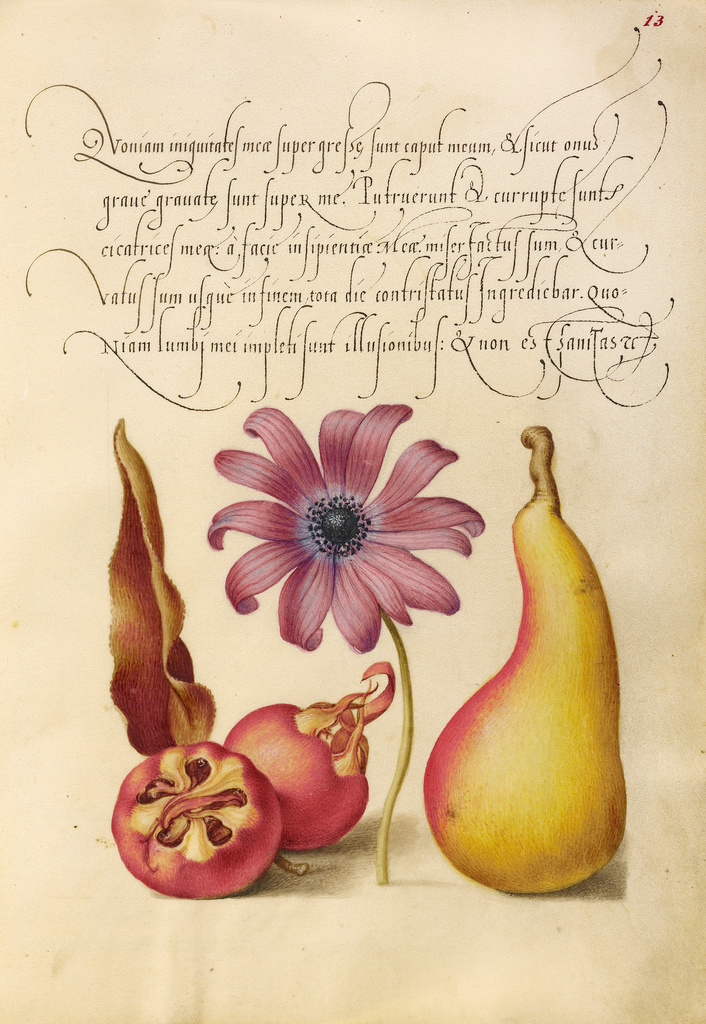 13
Quoniam iniquitates meæ supergressę sunt caput meum, & sicut onus
graue grauatę sunt super me. Putruerunt & currupte sunt
cicatrices meę: a, facie insipientiæ Meæ. miser factus sum, & cur-
vatus sum usque in finem, tota die contristatus Ingrediebar. Quo-
Niam lumbi mei impleti sunt illusionibus: & non est sanitas &c